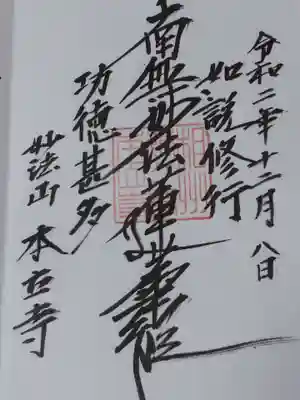 令和二年十二月八日
如説修行
南無妙法蓮華経
功徳甚多
妙法山 本立寺